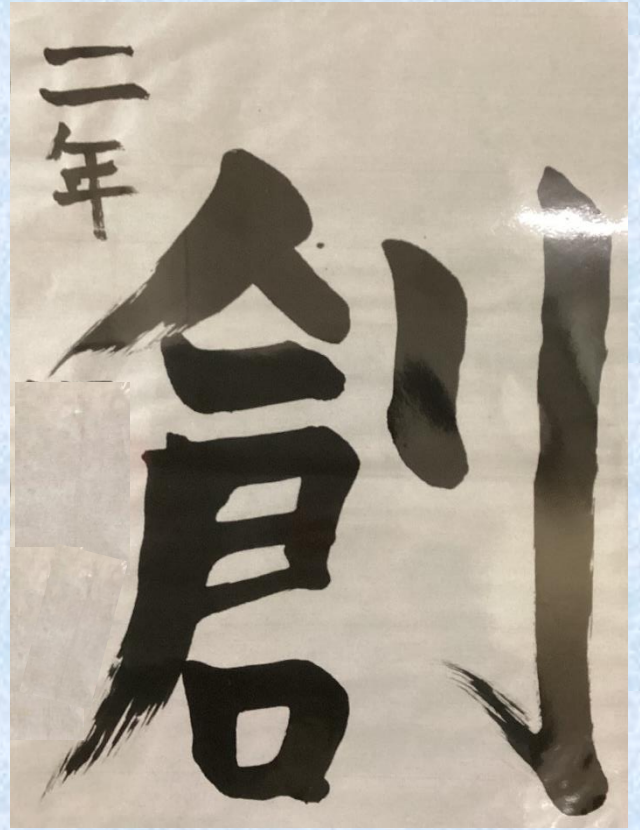 創
二年